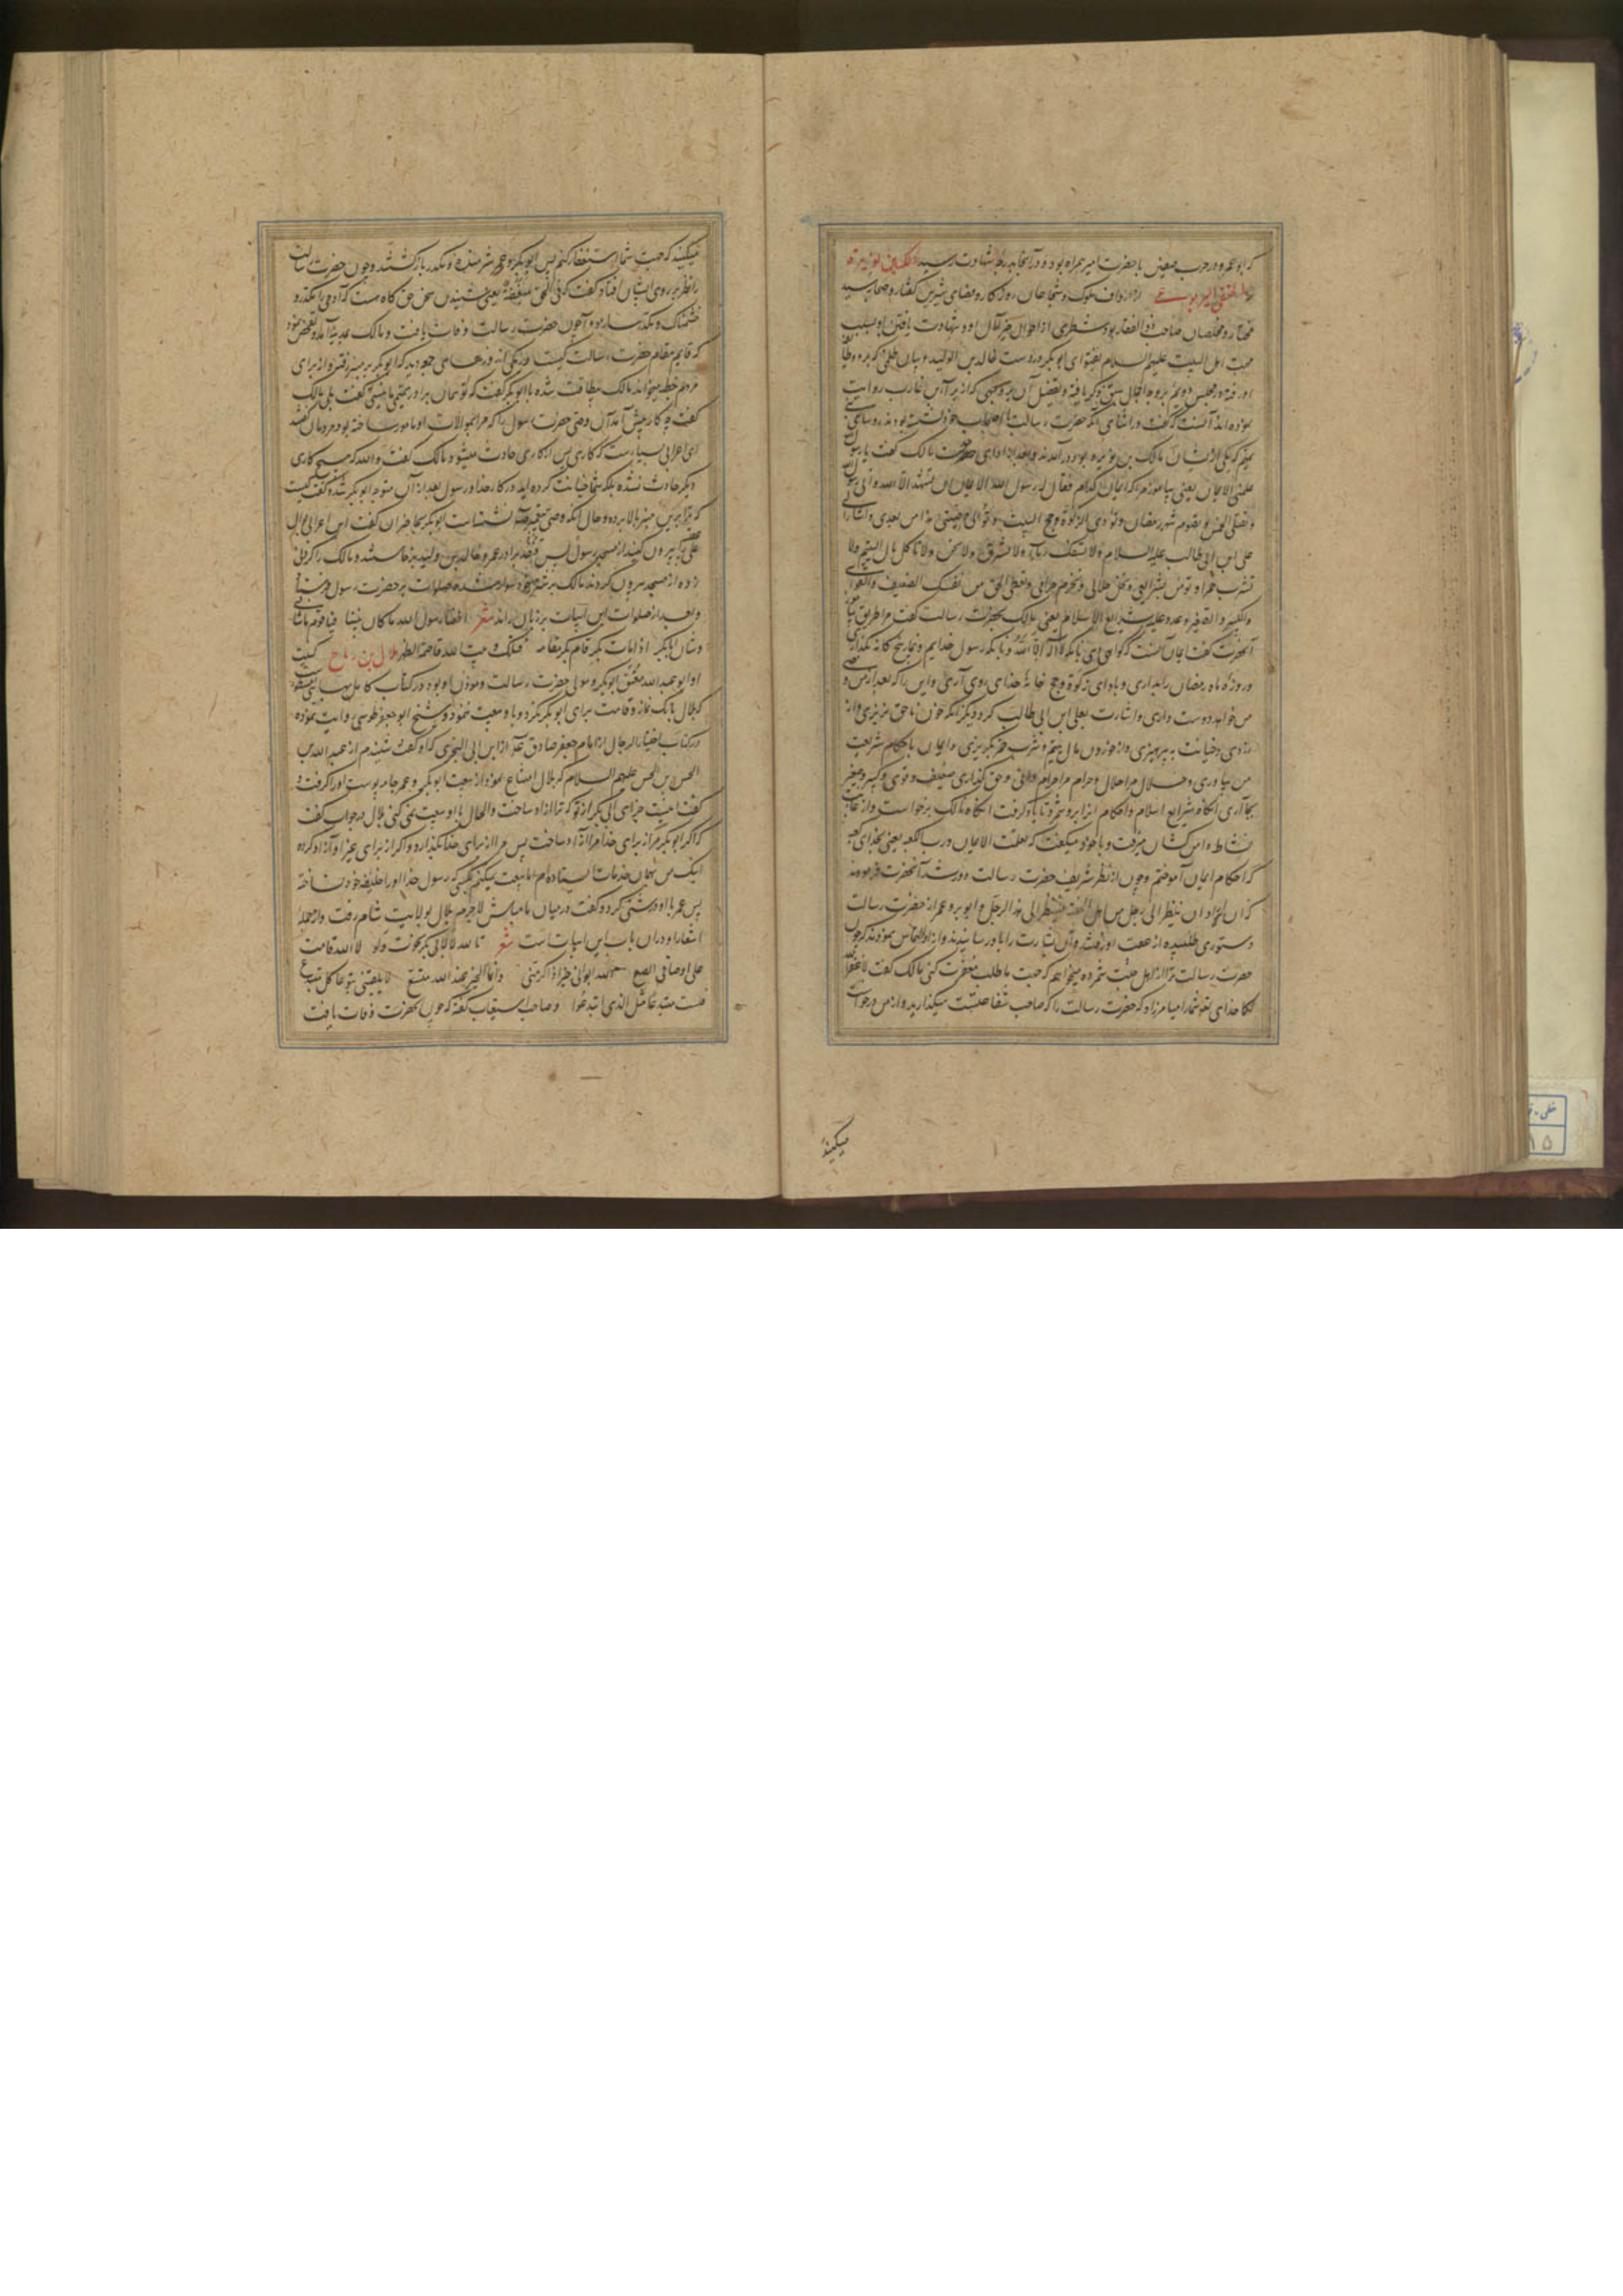 که ابو عمره در حرب صفین با حضرت امیر همراه بود و در آنجا بدرجه شهادت رسید مالک بن نویره
الحنفی الیربوعی از ارداف ملوک و شجاعان روزگار و فصحای شیرین گفتار و صحابه سید
مختار و مخلصان صاحب ذوالفقار بود شطری از احوال خیر مآل او و شهادت یافتن او بسبب
محبت اهل البیت علیهم السلام بفتوای ابوبکر و دست خالد بن الولید و بیان ظلمی که بر وی
او رفته در مجلس دوم بر وجه اجمال سبق ذکر یافته و تفصیل آن بر وجهی که از براء بن عازب روایت
نموده‌اند آنست که گفت در اثنای آنکه حضرت رسالت با اصحاب خود نشسته بودند رؤسای بنی
تمیم که یکی ازیشان مالک بن نویره بود درآمدند و بعد از ادای خدمت مالک گفت یا رسول الله
علمنی الایمان یعنی بیاموز مرا که ایمان کدامست فقال له رسول الله الایمان ان تشهد ان لا اله الا الله و انی رسول الله
و تصلی الخمس و تصوم شهر رمضان و تؤدی الزکوة و تحج البیت و توالی وصیی هذا من بعدی و اشار الی
علی ابن ابی طالب علیه السلام و لا تسفک دما و لا تسرق و لا تخن و لا تاکل مال الیتیم و لا
تشرب خمرا و تؤمن بشرایعی و تحل حلالی و تحرم حرامی و تعطی الحق من نفسک الضعیف والقوی
والکبیر والصغیر و عد علیه شرایع الاسلام یعنی مالک بحضرت رسالت گفت مرا طریق ایمان بیاموز
آنحضرت گفت ایمان آنست که گواهی دهی بانکه لا اله الا الله و بانکه رسول خدایم و نماز پنجگانه بگذاری
و روزه ماه رمضان را بداری و باادای زکوة و حج خانه خدای روی آری و این را که بعد از من وصی
من خواهد بود دوست داری و اشارت بعلی ابن ابی طالب کرد و دیگر آنکه خون ناحق نریزی و از
دزدی و خیانت بپرهیزی و از خوردن مال یتیم و شرب خمر بگریزی و ایمان باحکام شریعت
من بیاوری و حلال مرا حلال و حرام مرا حرام دانی و حق گذاری ضعیف و قوی و کبیر و صغیر
بجا آری آنگاه شرایع اسلام و احکام آنرا برو شمرد تا یاد گرفت آنگاه مالک برخواست و از غایت
نشاط دامن کشان میرفت و با خود میگفت که تعلمت الایمان و رب الکعبه یعنی بخدای کعبه
که احکام ایمان آموختم و چون از نظر شریف حضرت رسالت دور شد آنحضرت فرمودند
که من اراد ان ینظر الی رجل من اهل الجنة فلینظر الی هذا الرجل و ابوبکر و عمر از حضرت رسالت
دستوری طلبیده از عقب او رفتند و آن بشارت را باو رسانیدند و از او التماس نمودند که چون
حضرت رسالت ترا از اهل جنت شمرده میخواهیم که جهت ما طلب مغفرت کنی مالک گفت لا غفر الله
لکما خدای تعالی شما را نیامرزاد که حضرت رسالت را که صاحب شفاعتست میگذارید و از من درخواست
میکنید
میکنید که جهت شما استغفار کنم پس ابوبکر و عمر شرمنده و مکدر باز گشتند و چون حضرت رسالت
را نظر بر روی ایشان افتاد گفت که فی الحق مغضبة یعنی شنیدن سخن حق گاه هست که آدمی را مکدر و
خشمناک میسازد و آخر چون حضرت رسالت وفات یافت و مالک بمدینه آمد و تفحص نمود
که قایم مقام حضرت رسالت کیست در یکی از روزهای جمعه دید که ابوبکر بر منبر رفته و از برای
مردم خطبه میخواند مالک بیطاقت شده با ابوبکر گفت که تو همان برادر تیمی ما نیستی گفت بلی مالک
گفت چه کار پیش آمد آن وصی حضرت رسول را که مرا بموالات او مامور ساخته بود مردمان گفتند
ای اعرابی بسیارست که کاری پس از کاری حادث میشود مالک گفت والله که هیچ کاری
دیگر حادث نشده بلکه شما خیانت کرده‌اید در کار خدا و رسول بعد از آن متوجه ابوبکر شده گفت کیست
که ترا برین منبر بالا برده و حال آنکه وصی پیغمبر نشسته است ابوبکر بحاضران گفت این اعرابی بوال
علی عقبیه را بیرون کنید از مسجد رسول پس قنفذ برادر عمر و خالد بن ولید برخاستند و مالک را گردنی
زده از مسجد بیرون کردند مالک بر شتر خود سوار شده صلوات بر حضرت رسول فرستاد
و بعد از صلوات این ابیات بر زبان راند شعر اطعنا رسول الله ما کان بیننا فیا قوم ما شانی
و شان ابابکر اذا مات بکر قام بکر مقامه فتلک و بیت الله قاصمة الظهر بلال بن رباح کنیت
او ابو عبدالله معتق ابوبکر و مولی حضرت رسالت و مؤذن او بود در کتاب کامل بهائی مسطور است
که بلال بانک نماز و قامت برای ابوبکر نکرد و باو بیعت ننمود و شیخ ابو جعفر طوسی روایت نموده
در کتاب اختیار الرجال از امام جعفر صادق ع و از ابن ابی البختری که او گفت شنیدم از عبدالله بن
الحسن بن الحسن علیهم السلام که بلال امتناع نمود از بیعت ابوبکر و عمر جامه پوست او را گرفت و
گفت اینست جزای ابی بکر از تو که ترا آزاد ساخت و الحال با او بیعت نمی کنی بلال در جواب گفت
که اگر ابوبکر مرا از برای خدا آزاد ساخت پس مرا از برای خدا بگذارد و اگر از برای غیر او آزاد کرده
اینک من بهمان خدمات ایستاده‌ام اما بیعت نمیکنم بکسی که رسول خدا او را خلیفه خود نساخته
پس عمر با او درشتی کرد و گفت در میان ما مباش لاجرم بلال بولایت شام رفت و از جمله
اشعار او در آن باب این ابیات است شعر تالله لا لابی بکر نجوت و لو لا الله قامت
علی اوصالی الضبع الله بوانی خیرا و اکرمنی و انما الخیر عند الله متبع لا یلقینی تبوعا کل مبتدع
فلست مبتدعا مثل الذی ابتدعوا و صاحب استیعاب گفته که چون آنحضرت وفات یافت
خطی
۱۵